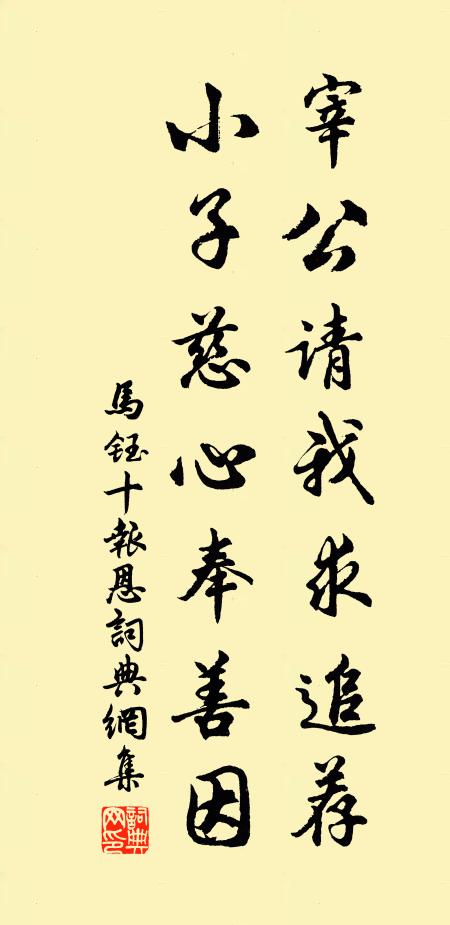 宰公请我求追荐
小子慈心奉善因
馬鈺十報恩詞典網集
詞典網印